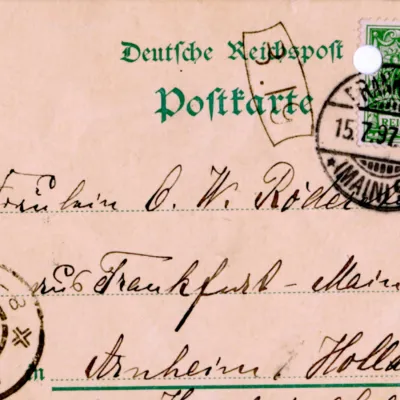 Deutsche Reichspost
Postkarte
FRANK
15.7.97.
*(MAIN)
Fräulein C. W. Röder
aus Frankfurt – Main
in Arnheim, Holla